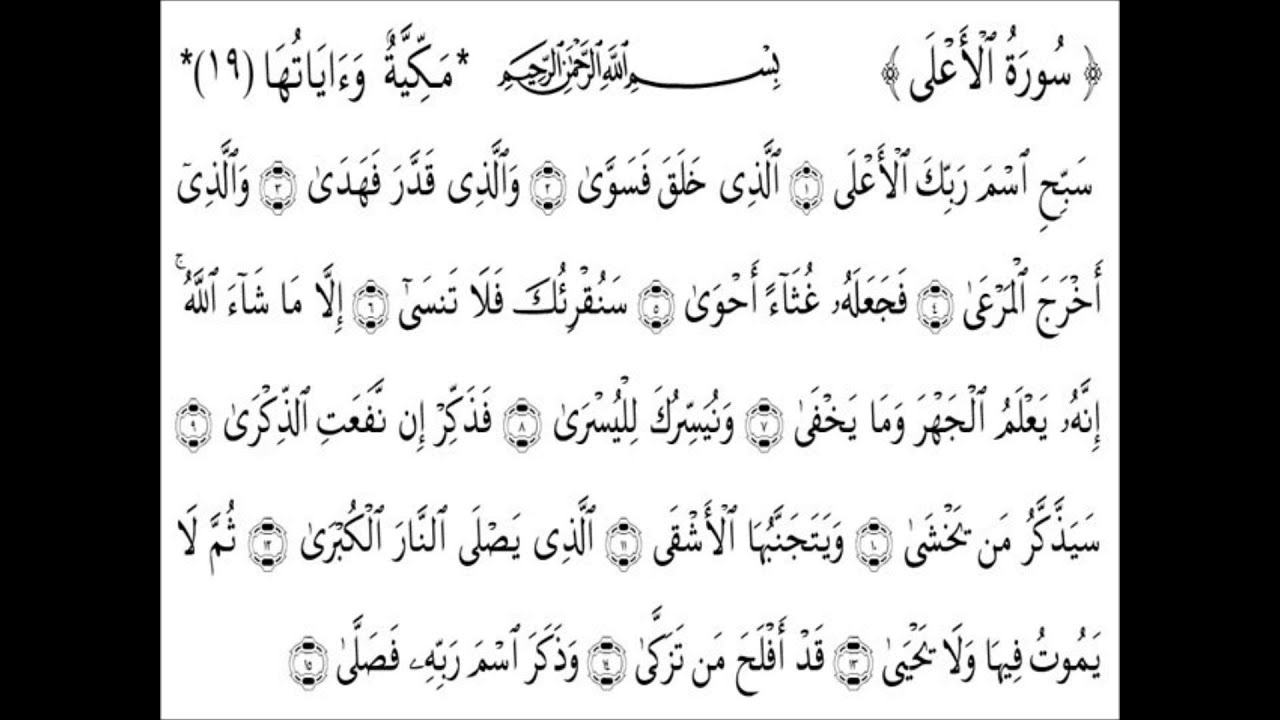 ﴿ سُورَةُ ٱلْأَعْلَى ﴾ بِسْمِ ٱللَّهِ ٱلرَّحْمَٰنِ ٱلرَّحِيمِ *مَكِّيَّةٌ وَءَايَاتُهَا (١٩)*
سَبِّحِ ٱسْمَ رَبِّكَ ٱلْأَعْلَى ١ ٱلَّذِى خَلَقَ فَسَوَّىٰ ٢ وَٱلَّذِى قَدَّرَ فَهَدَىٰ ٣ وَٱلَّذِىٓ
أَخْرَجَ ٱلْمَرْعَىٰ ٤ فَجَعَلَهُۥ غُثَآءً أَحْوَىٰ ٥ سَنُقْرِئُكَ فَلَا تَنسَىٰٓ ٦ إِلَّا مَا شَآءَ ٱللَّهُ ۚ
إِنَّهُۥ يَعْلَمُ ٱلْجَهْرَ وَمَا يَخْفَىٰ ٧ وَنُيَسِّرُكَ لِلْيُسْرَىٰ ٨ فَذَكِّرْ إِن نَّفَعَتِ ٱلذِّكْرَىٰ ٩
سَيَذَّكَّرُ مَن يَخْشَىٰ ١٠ وَيَتَجَنَّبُهَا ٱلْأَشْقَى ١١ ٱلَّذِى يَصْلَى ٱلنَّارَ ٱلْكُبْرَىٰ ١٢ ثُمَّ لَا
يَمُوتُ فِيهَا وَلَا يَحْيَىٰ ١٣ قَدْ أَفْلَحَ مَن تَزَكَّىٰ ١٤ وَذَكَرَ ٱسْمَ رَبِّهِۦ فَصَلَّىٰ ١٥